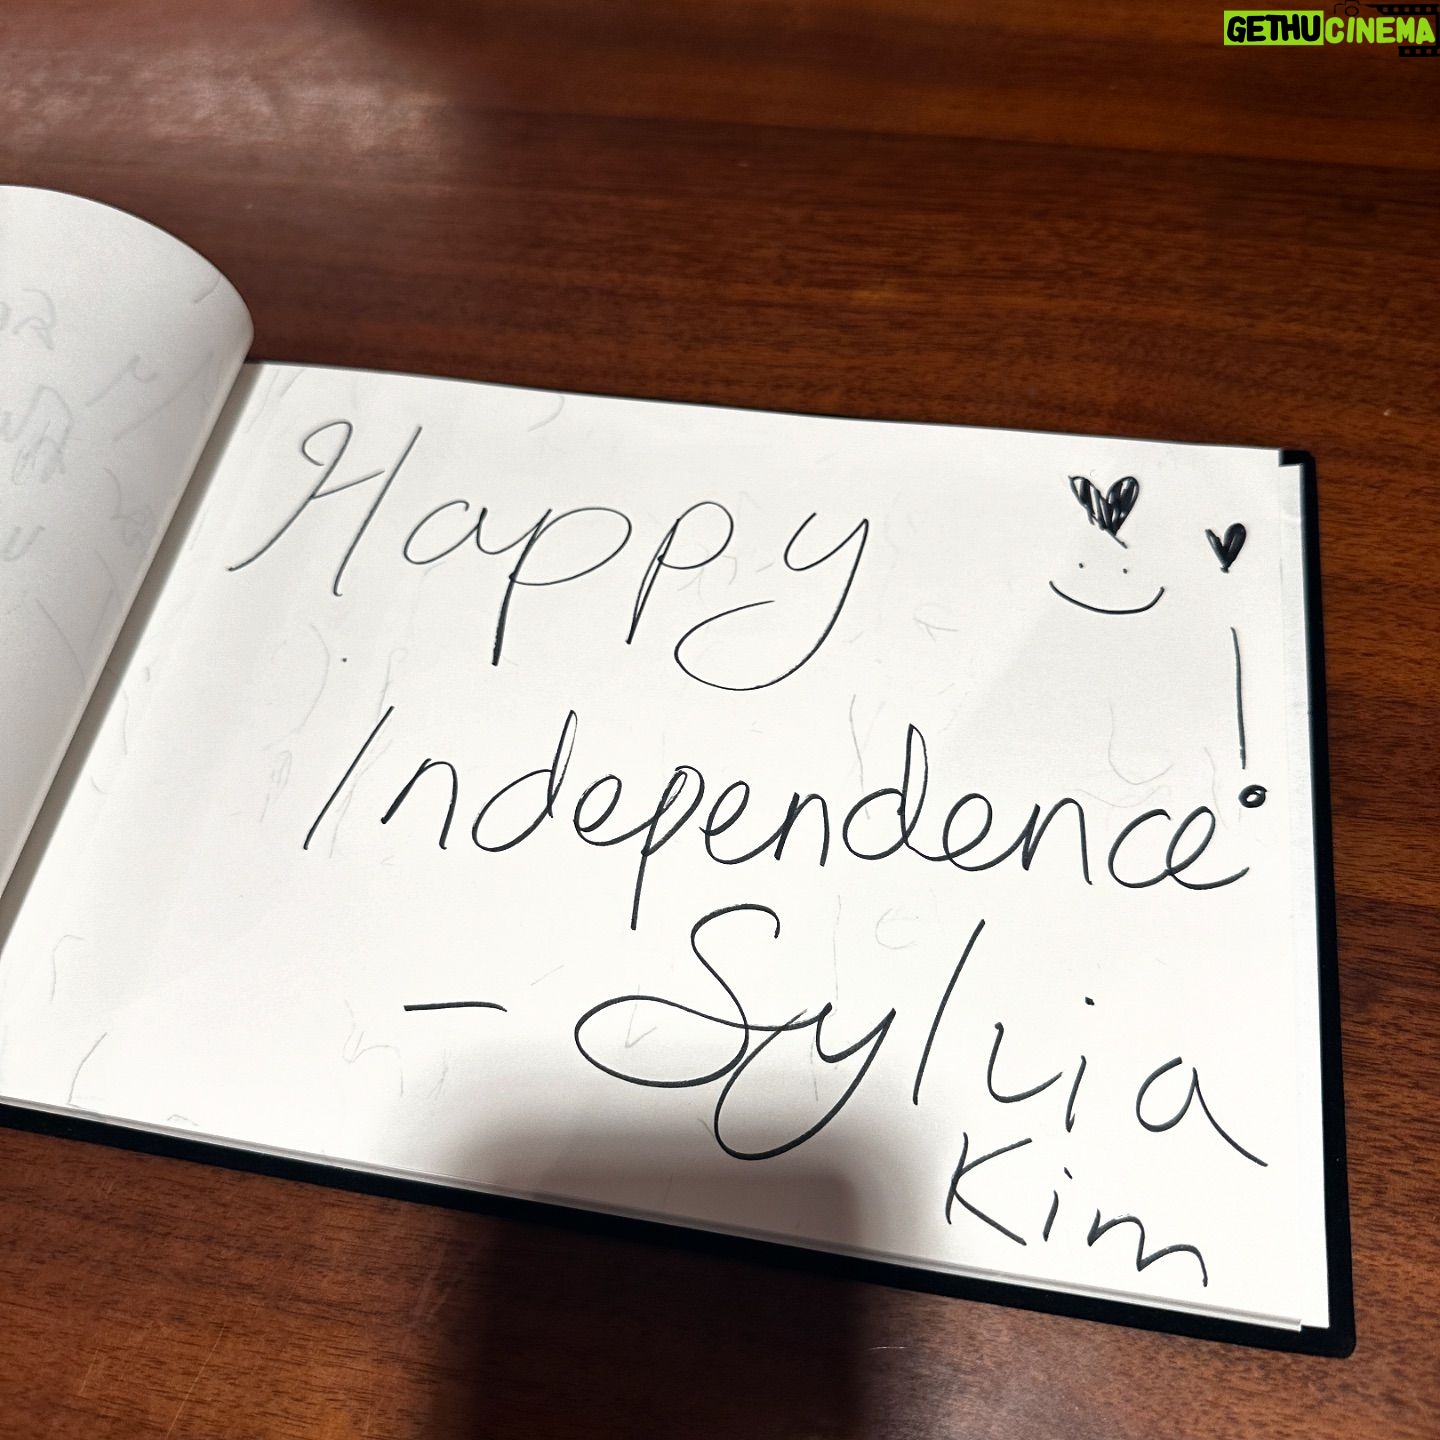 GETHUCINEMA
Happy
Independence!
- Sylvia
Kim